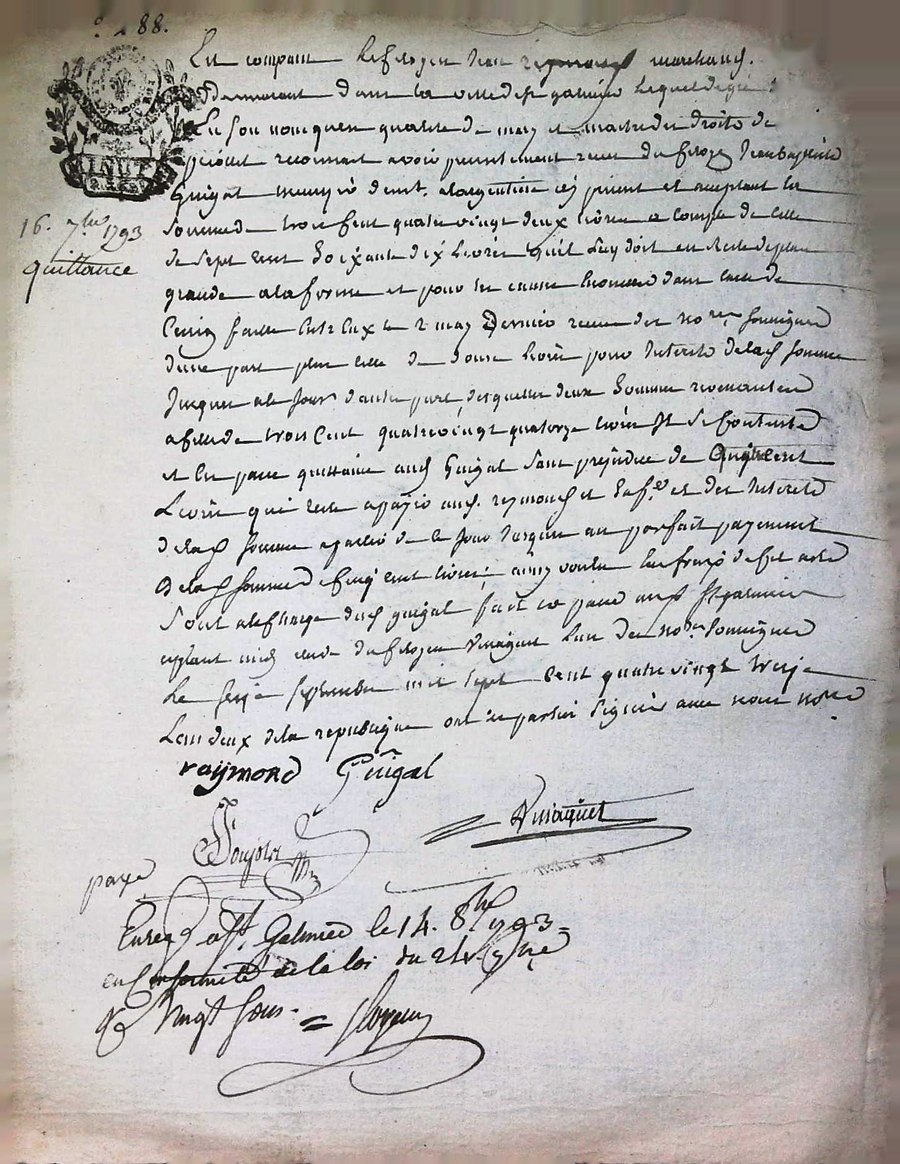 88.
Est comparu le citoyen Jean reymond marchand
Demeurant dans la ville de st galmier lequel de gré
En son nom que en qualité de mary et maitre des droits de
reconnait avoir presentement receu du citoyen Jean Baptiste
Guigal a largentiere icy present et acceptant la
Somme de trois cent quatre vingt deux livres a compte de celle
de Sept cent Soixante dix livres quil luy doit en reste de plus
grande a la forme et pour les causes enoncées dans lacte de
faitte entre Eux le 2 may Dernier receue des nores soussignes
dune part plus celle de douze livres pour Interets de lad. somme
Jusques a ce Jour dautre part, desquelles deux Sommes revenantes
a celle de trois Cent quatrevingt quatorze livres Il se contente
et en passe quittance aud. Guigal sans prejudice de
Livres qui reste a payer aud. reymond et des Interets
de lad. somme a partir de ce jour Jusques au parfait payement
De lad. somme de cinq cent livres, ainsy voulu les frais de cet acte
Sont a la charge dud. guigal fait et passé aud. St galmier
avant midy etude du citoyen Vinaguet lun des nores Soussignes
Le seize septembre mil sept cent quatre vingt treize
Lan deux de la republique ont les parties signés avec nous nores
16. 7bre 1793
quittance
raymond Guigal
Vinaguet
payé
Enreg. a St. Galmier le 14. 8bre 1793
en Conformité de la loi du 24. 7bre
Vingt sous.